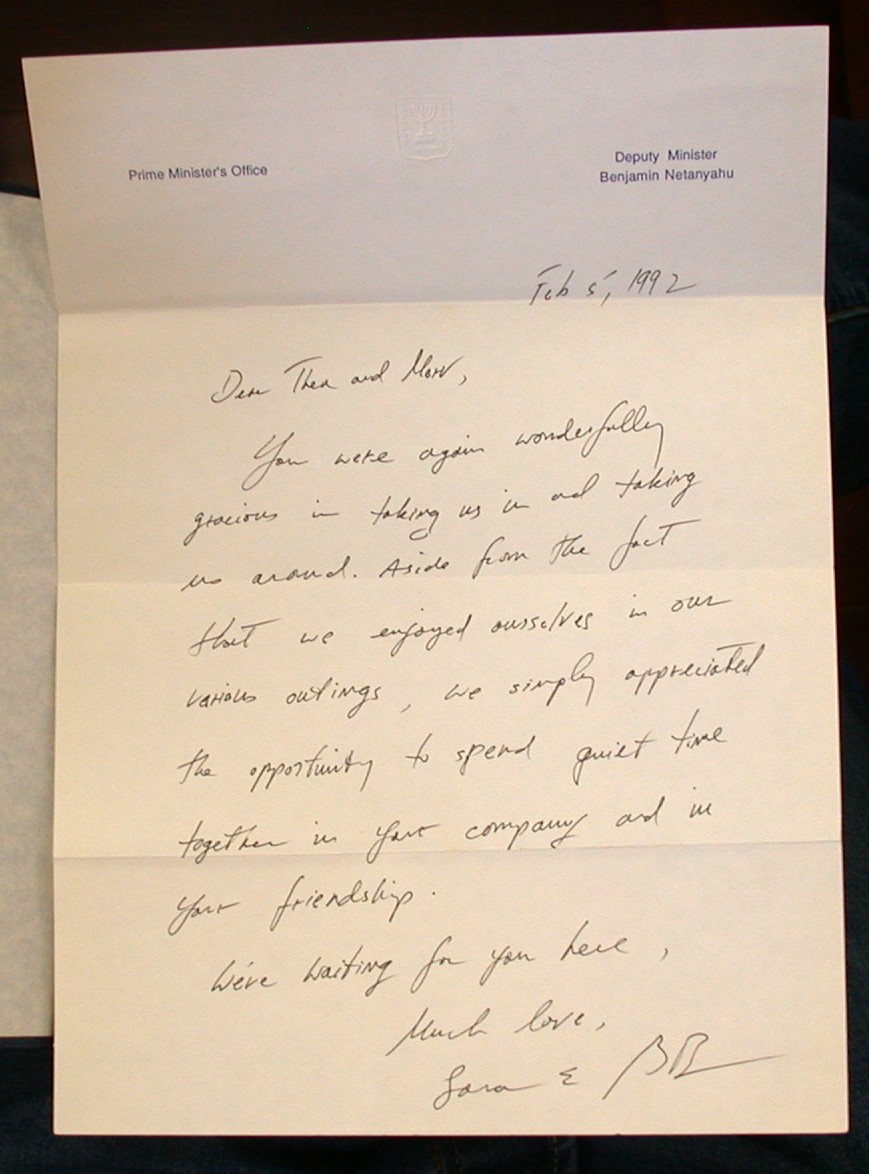 Prime Minister's Office
Deputy Minister
Benjamin Netanyahu
Feb 5, 1992
Dear Thea and Marv,
You were again wonderfully
gracious in taking us in and taking
us around. Aside from the fact
that we enjoyed ourselves in our
various outings, we simply appreciated
the opportunity to spend quiet time
together in your company and in
your friendship.
We're waiting for you here,
Much love,
Sara & BB